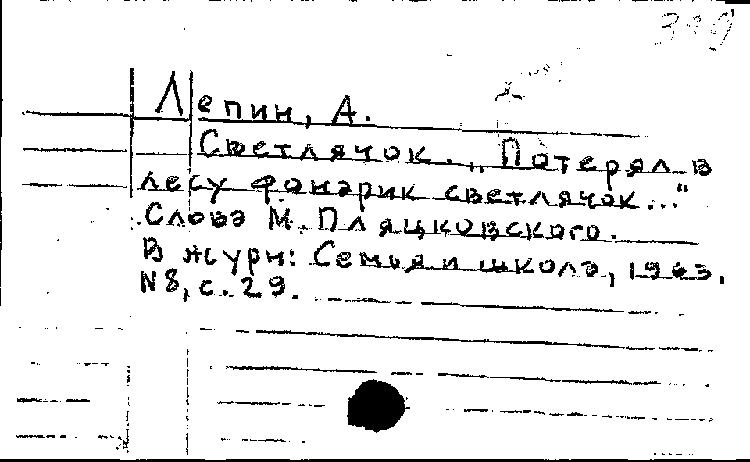 Лепин, А.
Светлячок. „Потерял в
лесу фонарик светлячок..."
Слова М. Пляцковского.
В журн: Семья и школа, 1963.
N8, с. 29.